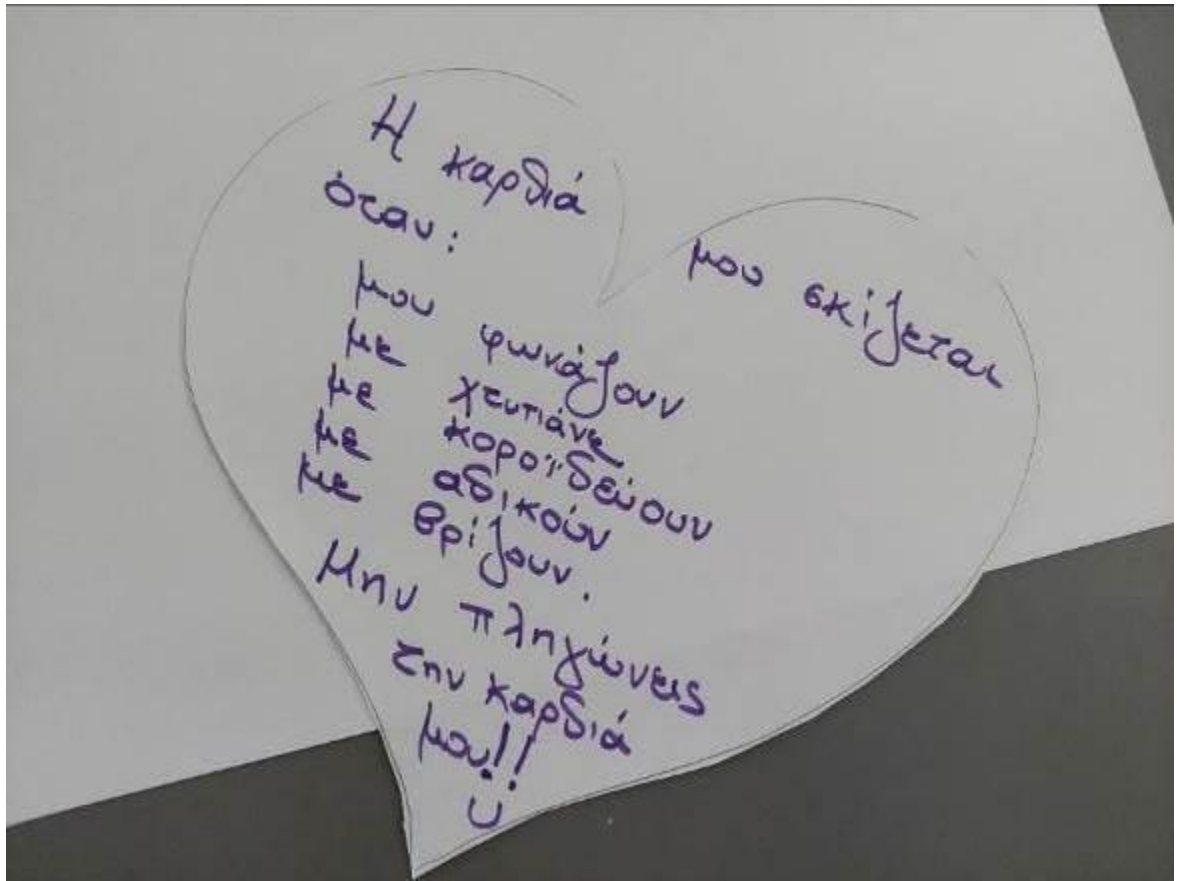 Η καρδιά μου σκίζεται
όταν:
μου φωνάζουν
με χτυπάνε
με κοροϊδεύουν
με αδικούν
με βρίζουν.
Μην πληγώνεις
την καρδιά
μου!!